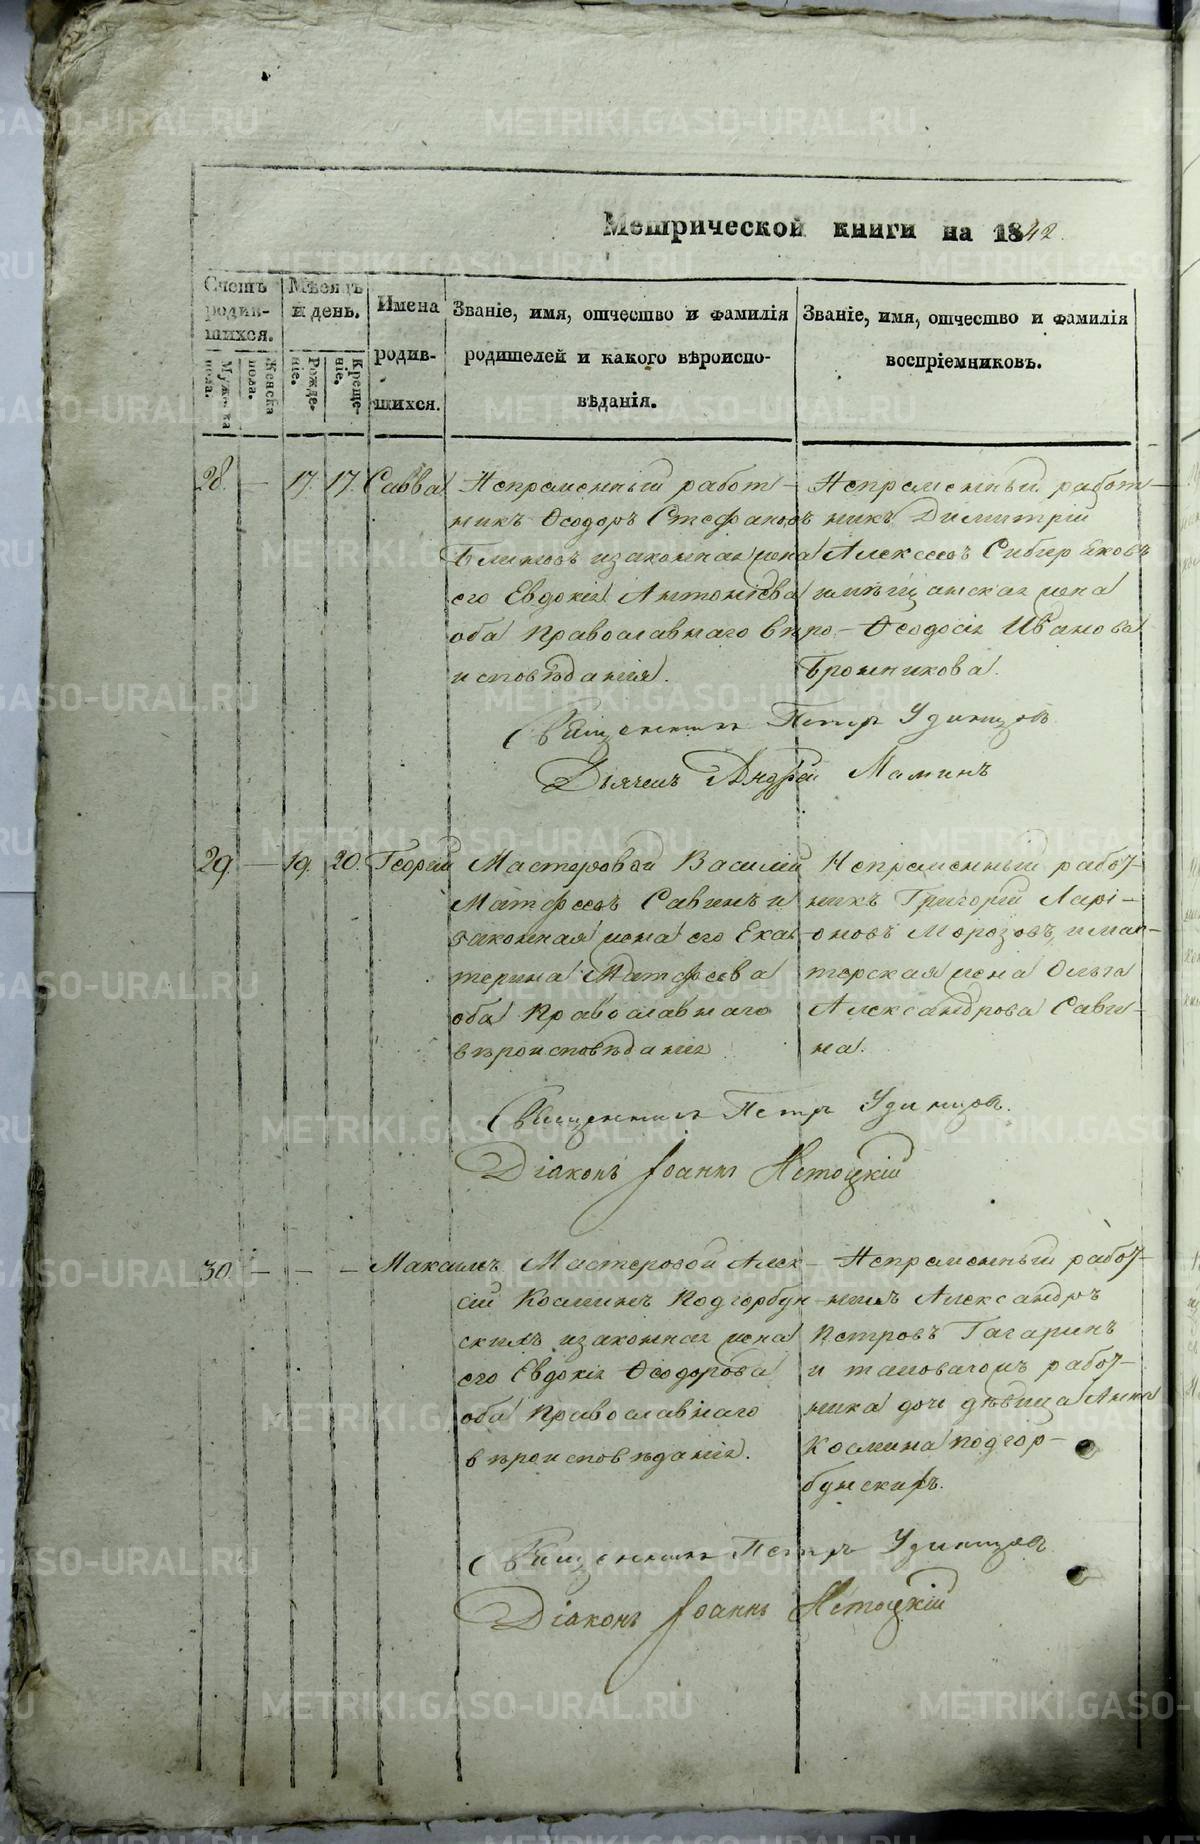 Метрической книги на 1842.
Счетъ родив-шихся.
Мѣсяцъ и день.
Имена родив-шихся.
Званіе, имя, отчество и фамилія родителей и какого вѣроиспо-вѣданія.
Званіе, имя, отчество и фамилія воспріемниковъ.
Мужеска пола.
Женска пола.
Рожде-ніе.
Креще-ніе.
28. — 17. 17. Савва
Непременный работ-
никъ Ѳеодоръ Стефановъ
Блиновъ и законная жена
его Евдокія Антоніева
оба Православнаго вѣро-
исповѣданія.
Непременный работ-
никъ Димитрій
Алексеевъ Сибиряковъ
и мѣщанская жена
Ѳеодосія Иванова
Бронникова.
Священникъ Петръ Удинцовъ
Дьячекъ Андрей Маминъ
29. — 19. 20. Георгій
Мастеровой Василій
Матфеевъ Савинъ и
законная жена его Ека-
терина Матфеева
оба Православнаго
вѣроисповѣданія
Непременный работ-
никъ Григорій Ларі-
оновъ Морозовъ, и мас-
терская жена Ольга
Александрова Сави-
на.
Священникъ Петръ Удинцовъ.
Діаконъ Іоаннъ Нетоцкій
30. — — — Макаилъ
Мастеровой Алек-
сій Косминъ Подгорбун-
скихъ и законная жена
его Евдокія Ѳеодорова
оба Православнаго
вѣроисповѣданія.
Непременный работ-
никъ Александръ
Петровъ Гагаринъ
и таковагожъ работ-
ника дочь дѣвица Анна
Космина Подгор-
бунскихъ.
Священникъ Петръ Удинцовъ
Діаконъ Іоаннъ Нетоцкій
METRIKI.GASO-URAL.RU